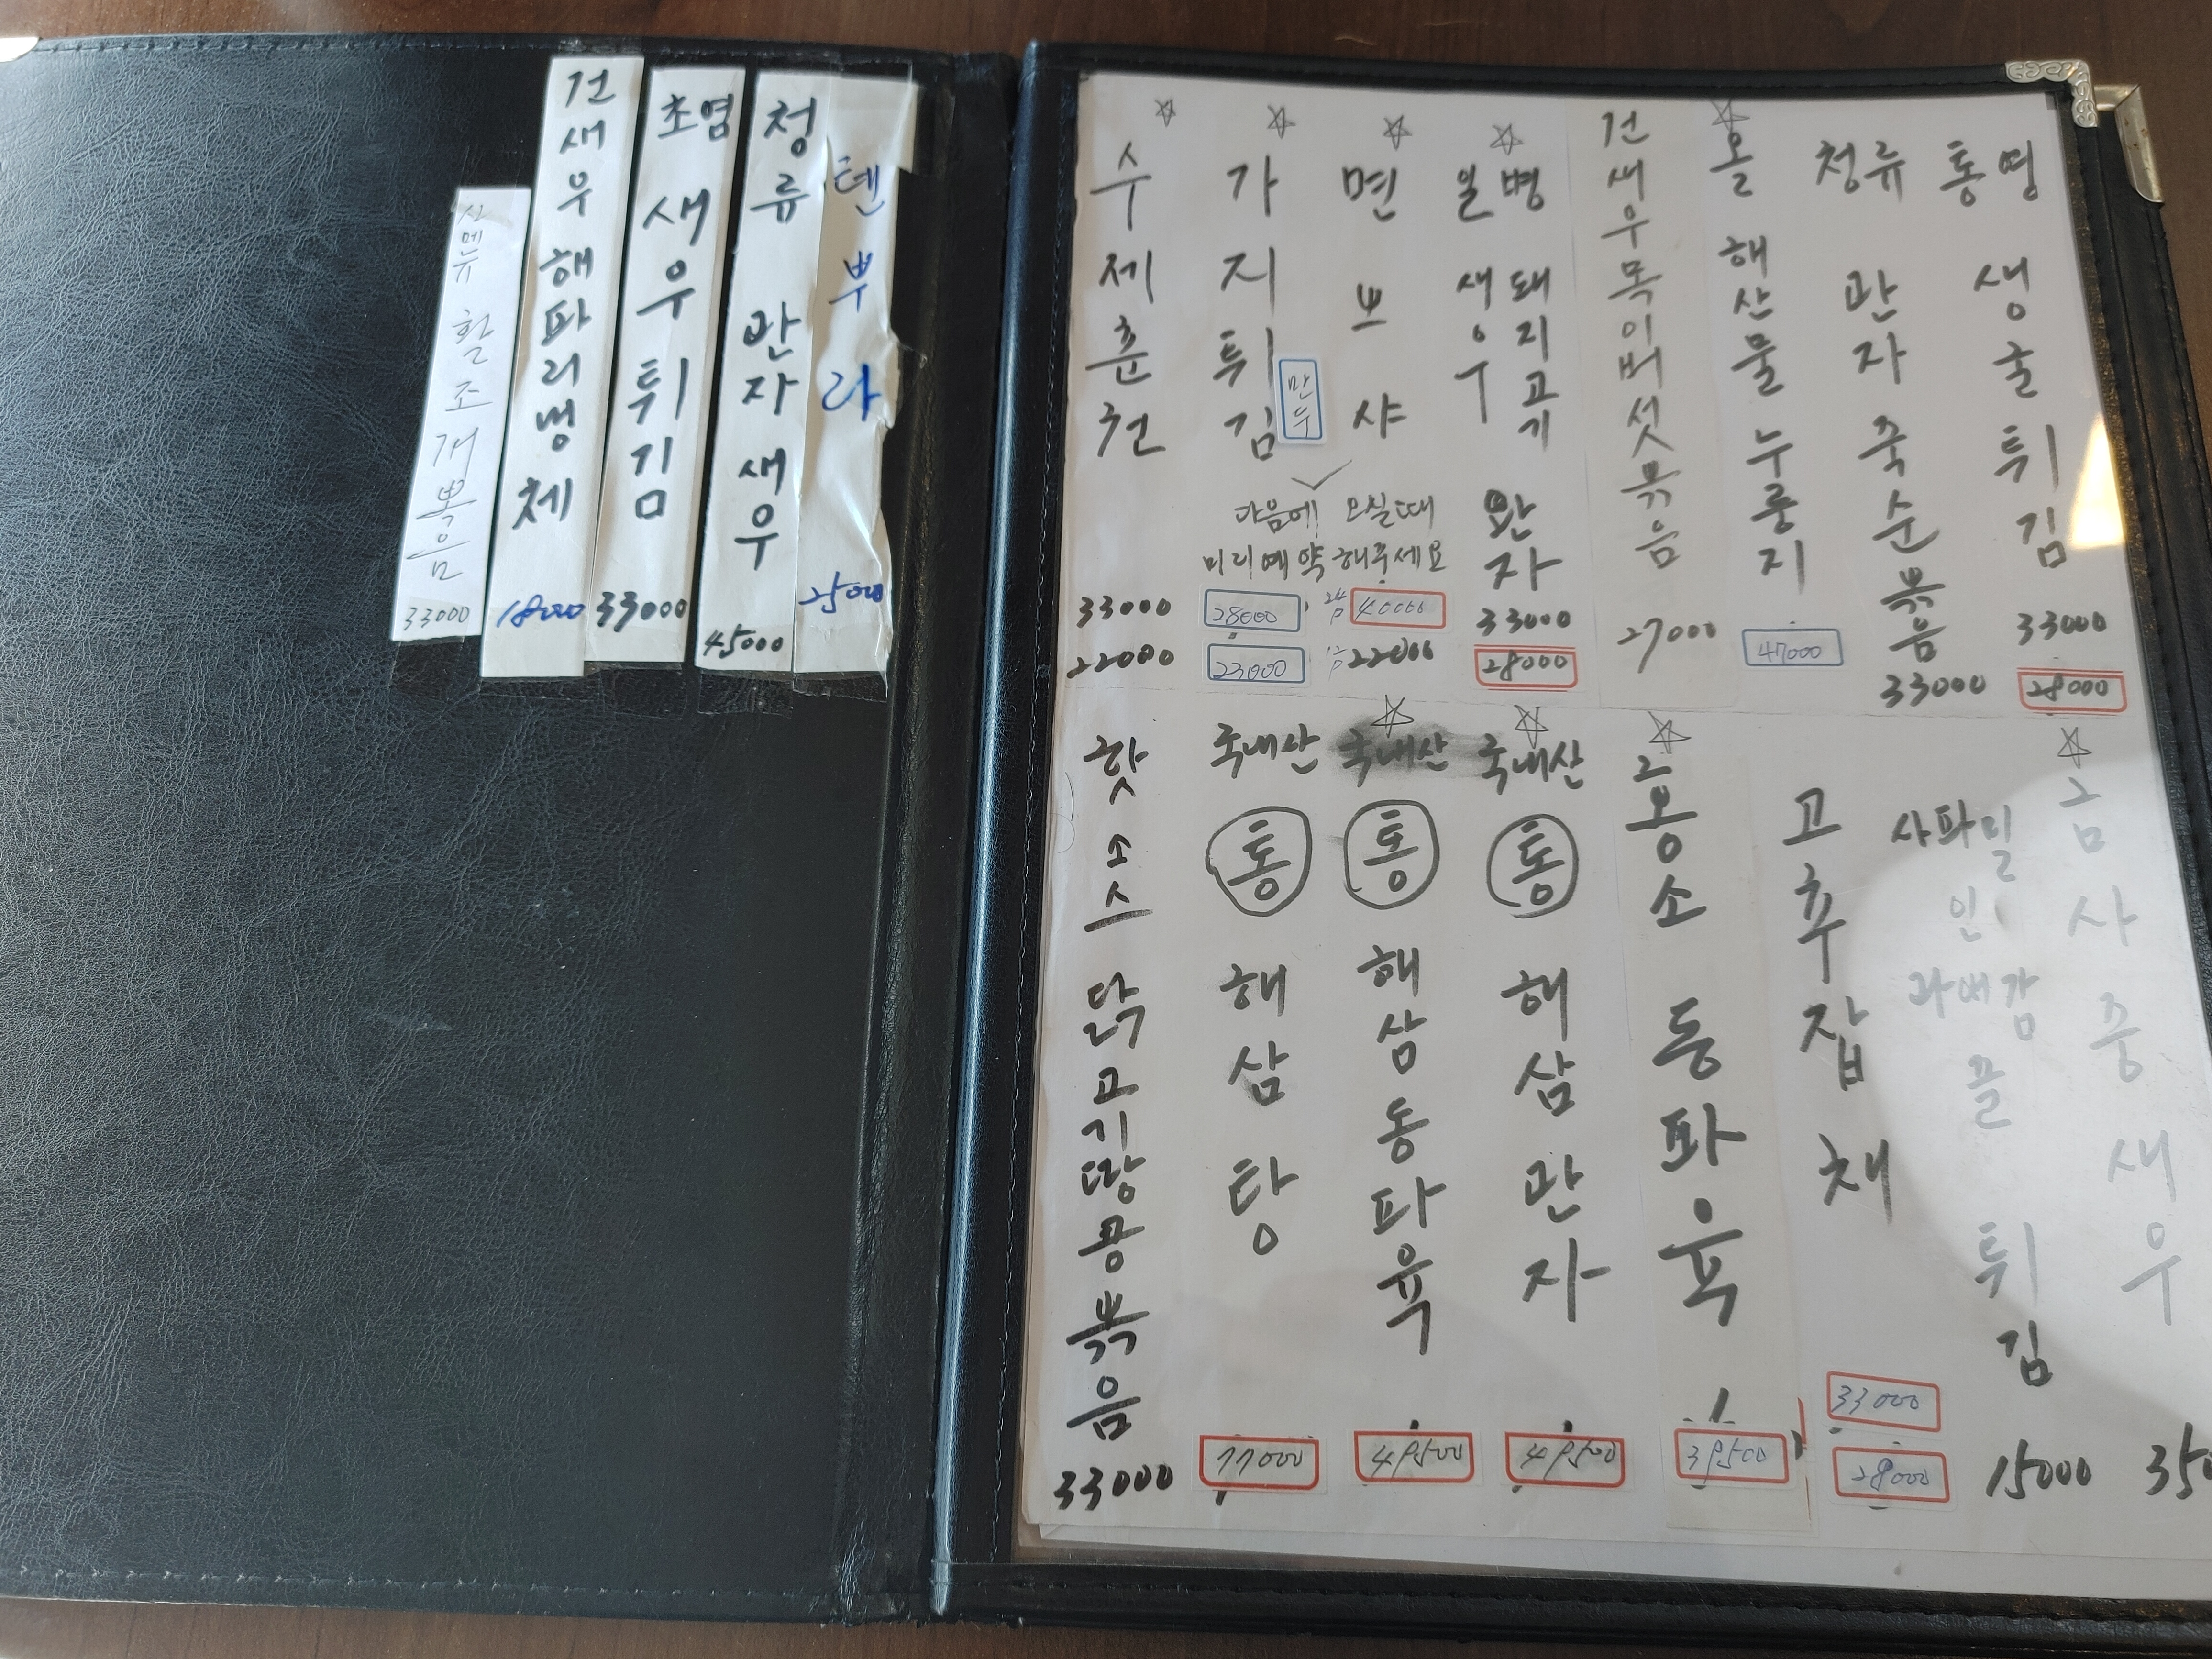 신메뉴 활조개볶음
33000
건새우해파리냉채
18000
초염 새우튀김
33000
청류 관자새우
45000
텐뿌라
25000
수제춘권
33000
22000
가지튀김
만두
28000
23000
면뽀샤
24P 40000
12P 22000
다음에 오실때
미리예약해주세요
일병 새우 돼지고기 완자
33000
28000
건새우목이버섯볶음
27000
올 해산물 누룽지
47000
청류 관자죽순볶음
33000
통영 생굴튀김
33000
28000
핫소스 닭고기땅콩볶음
33000
국내산 통 해삼탕
77000
국내산 통 해삼동파육
49500
국내산 통 해삼관자
49500
홍소 동파육
39500
고추잡채
33000
28000
튀김
15000
금사중새우